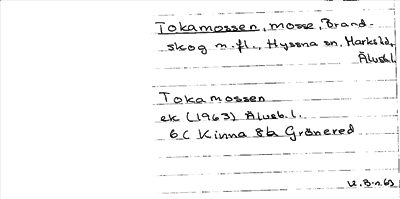 Tokamossen, mosse, Brand-
skog m.fl., Hyssna sn, Marks hd,
Älvsb.l.
Tokamossen
ek (1963) Älvsb.l.
6C Kinna 8b Grönered